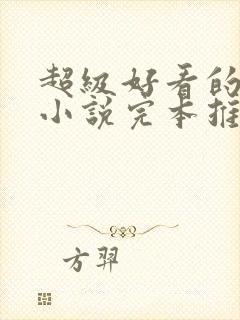 超级好看的
小说完本推
方羿